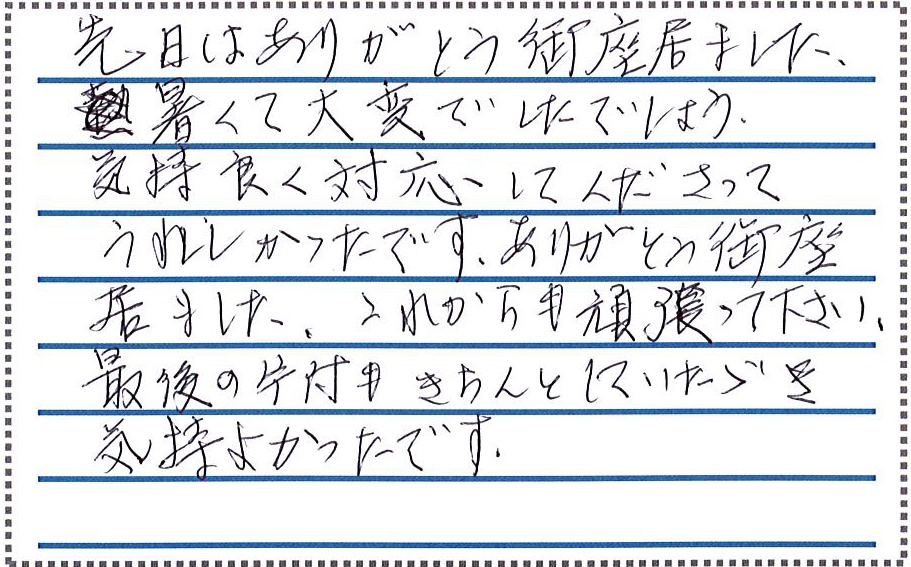 先日はありがとう御座居ました、
暑くて大変でしたでしょう.
気持良く対応してくださって
うれしかったです、ありがとう御座
居ました、これからも頑張って下さい、
最後の片付もきちんとしていただき
気持よかったです.